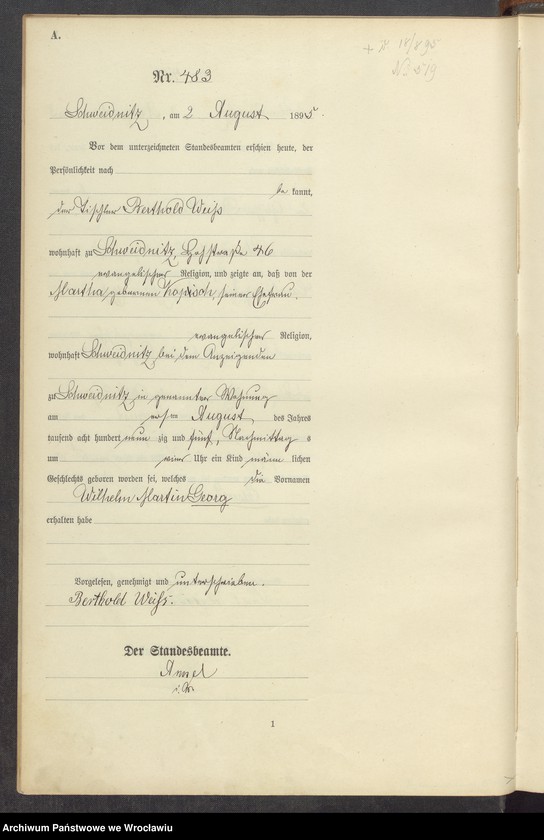 A.
+ N. 18/895
No 519
Nr. 483
Schweidnitz, am 2 August 1895.
Vor dem unterzeichneten Standesbeamten erschien heute, der
Persönlichkeit nach
be kannt,
der Tischler Berthold Weiß
wohnhaft zu Schweidnitz, Hochstraße 46
evangelischer Religion, und zeigte an, daß von der
Martha geborenen Kopisch, seiner Ehefrau,
evangelischer Religion,
wohnhaft Schweidnitz bei dem Anzeigenden
zu Schweidnitz in genannter Wohnung
am ersten August des Jahres
tausend acht hundert neun zig und fünf, Nachmittag s
um eins Uhr ein Kind männ lichen
Geschlechts geboren worden sei, welches die Vornamen
Wilhelm Martin Georg
erhalten habe
Vorgelesen, genehmigt und unterschrieben.
Berthold Weiß.
Der Standesbeamte.
1
Archiwum Państwowe we Wrocławiu